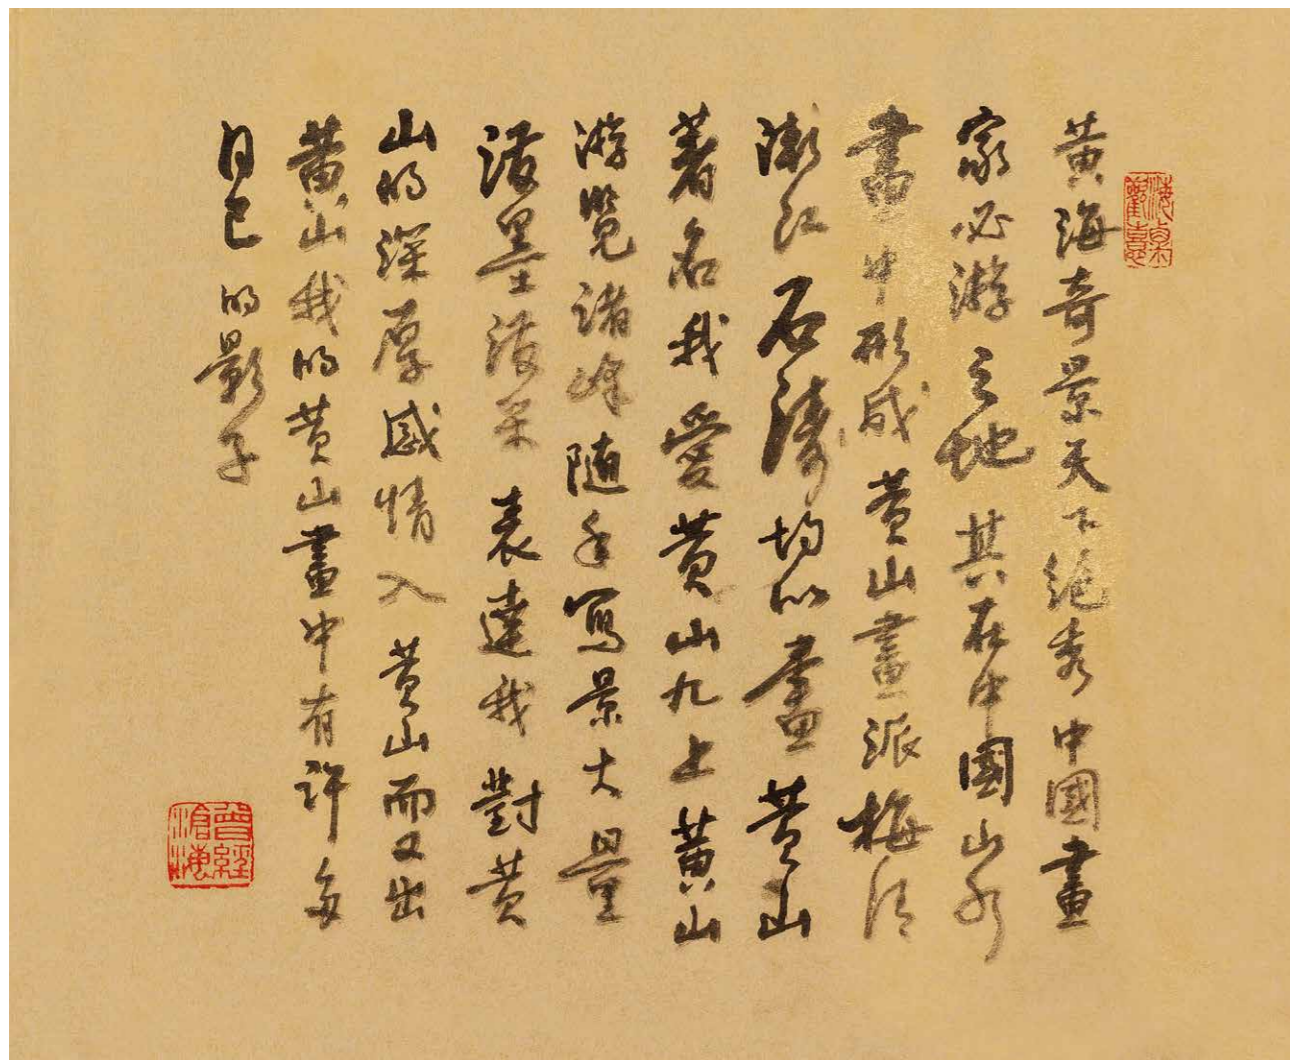 黄海奇景天下絕秀中國畫
家必游之地其在中國山水
畫中形成黄山畫派梅清
漸江石濤均以畫黄山
著名我愛黄山九上黄山
游覽諸峰随手寫景大量
潑墨潑采表達我對黄
山的深厚感情入黄山而又出
黄山我的黄山畫中有許多
自己的影子
曾經滄海